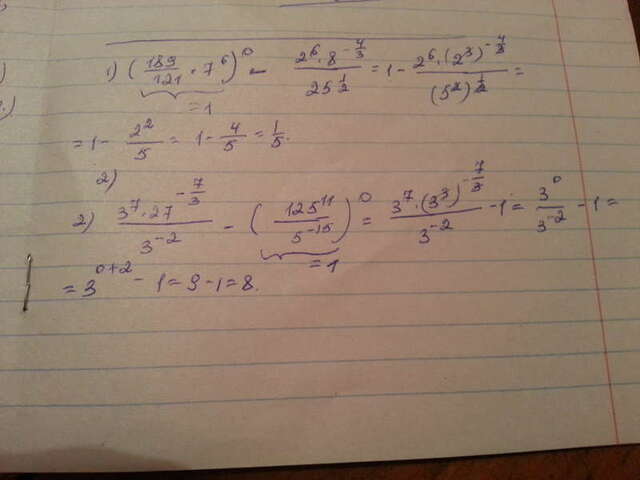 1) (189/121 · 7^6)^0 − (2^6 · 8^(−4/3))/(25^(1/2)) = 1 − (2^6 · (2^3)^(−4/3))/((5^2)^(1/2)) =
= 1
= 1 − 2^2/5 = 1 − 4/5 = 1/5.
2)
2) (3^7 · 27^(−7/3))/(3^(−2)) − (125^11/5^(−15))^0 = (3^7 · (3^3)^(−7/3))/(3^(−2)) − 1 = 3^0/3^(−2) − 1 =
= 1
= 3^(0+2) − 1 = 9 − 1 = 8.